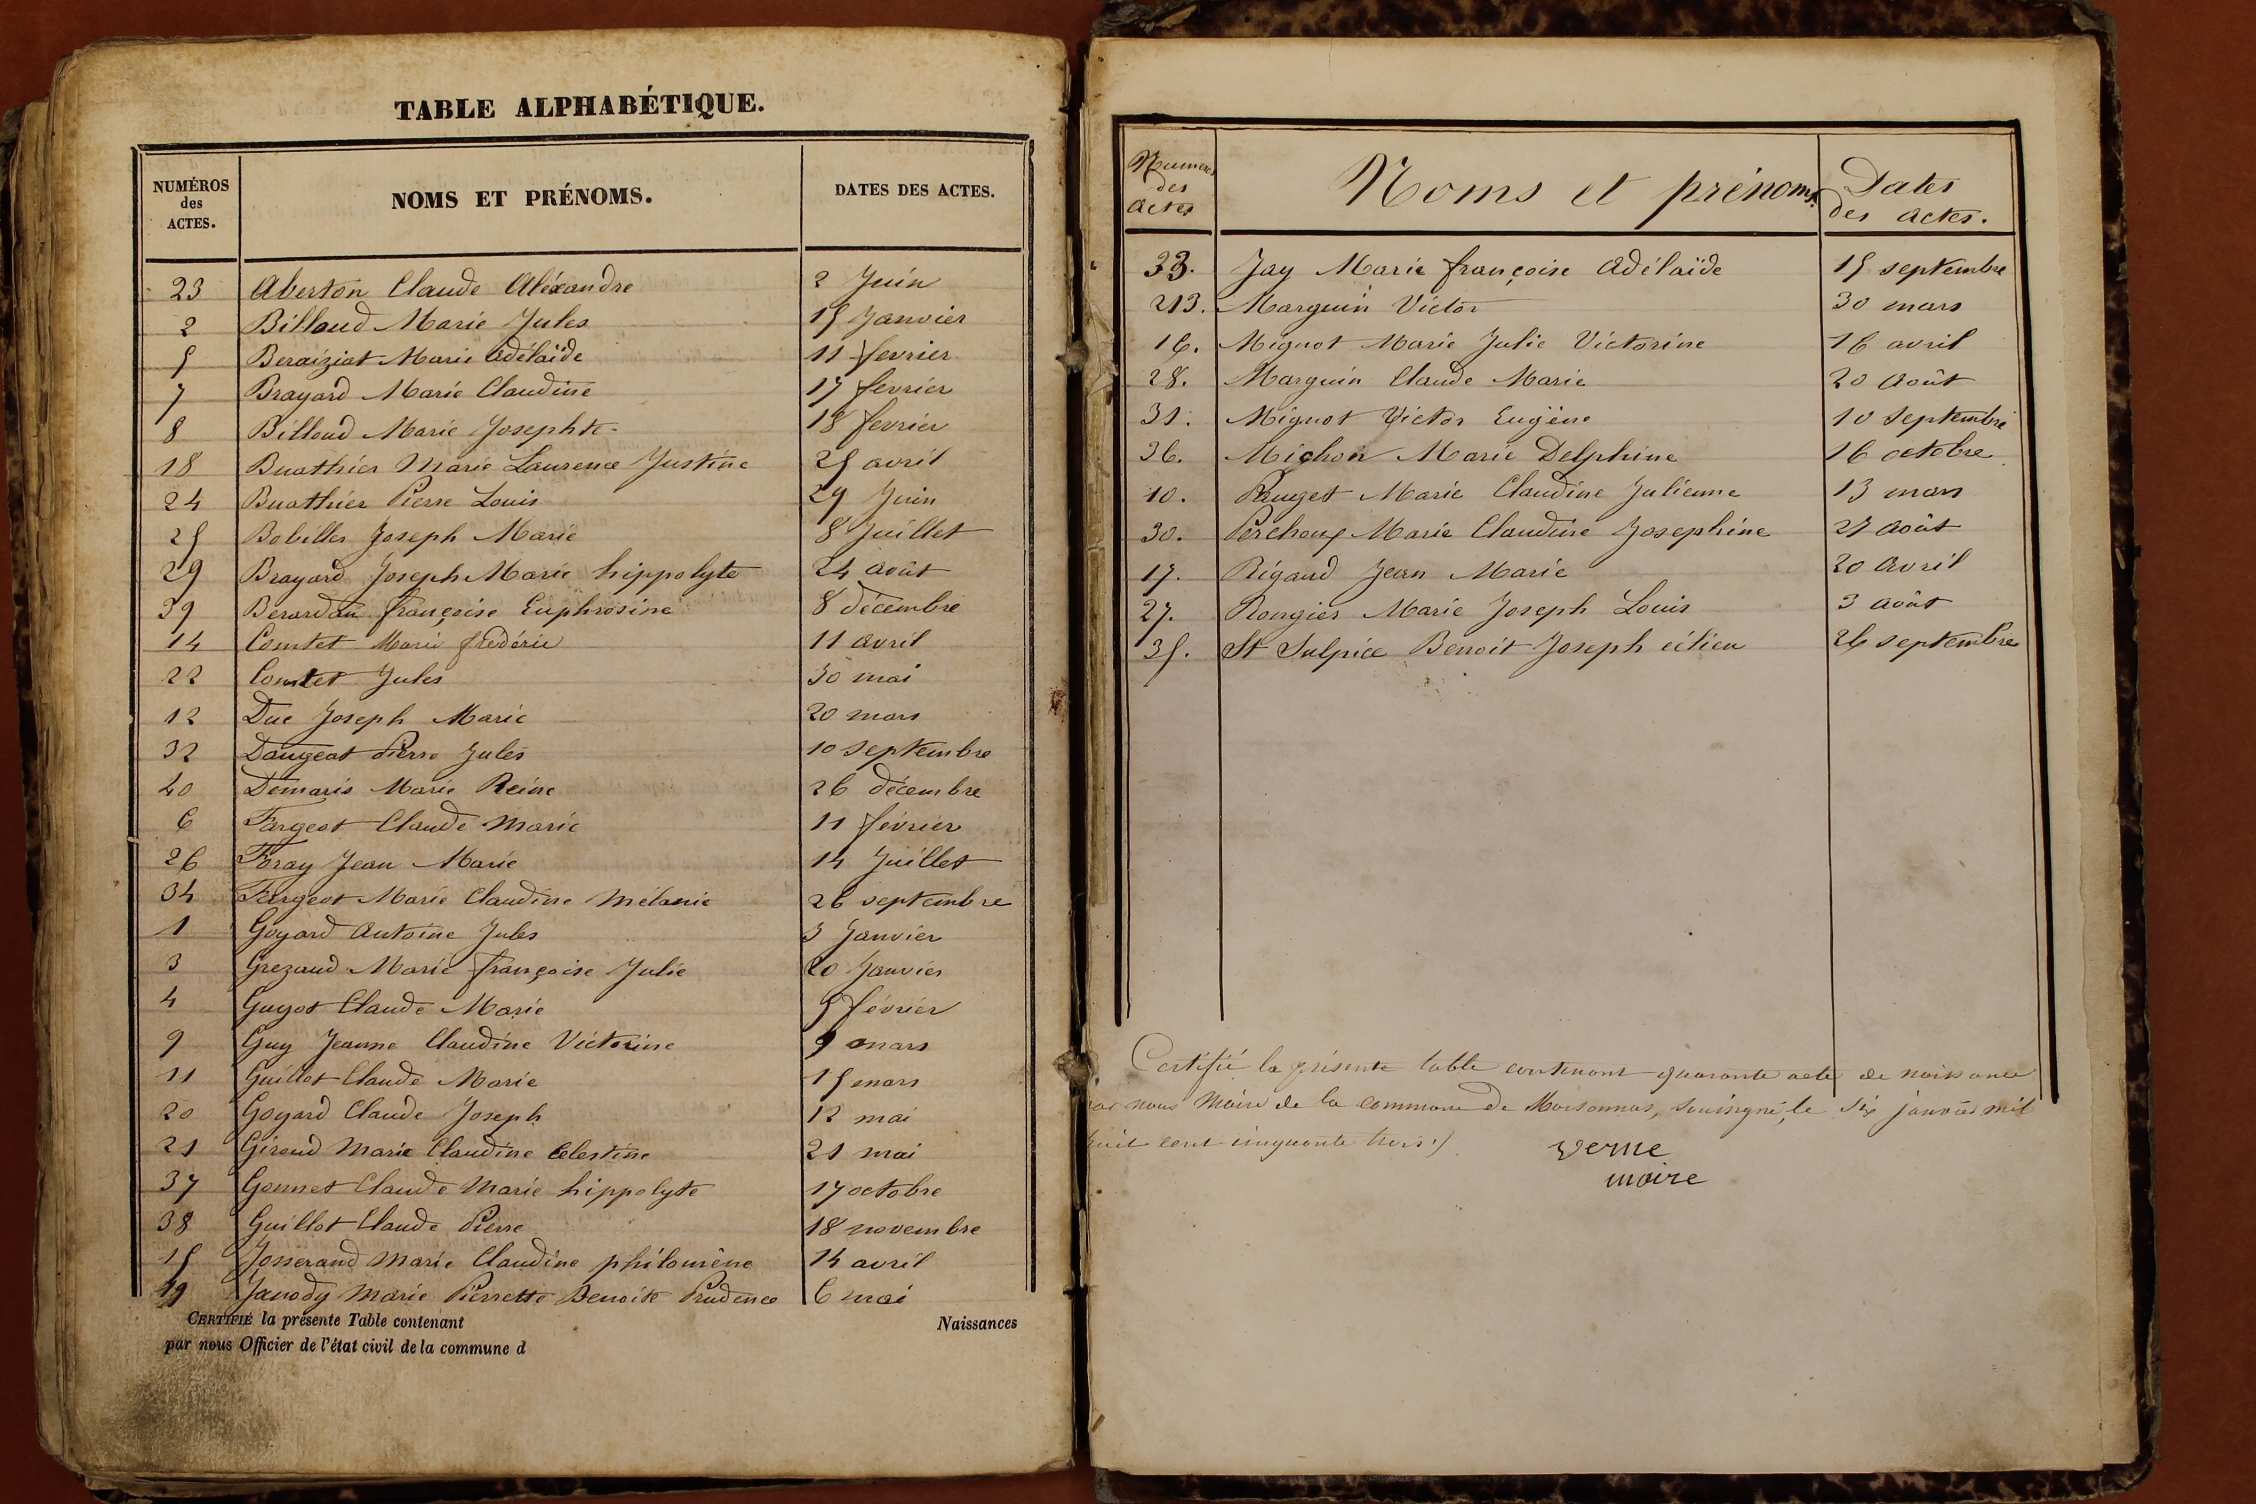 TABLE ALPHABÉTIQUE.
NUMÉROS des ACTES. NOMS ET PRÉNOMS. DATES DES ACTES.
23 Aberton Claude Aléxandre 2 Juin
2 Billoud Marie Jules 15 Janvier
5 Beraiziat Marie Adélaïde 11 fevrier
7 Brayard Marie Claudine 17 fevrier
8 Billoud Marie Josephte 18 fevrier
18 Buathier Marie Laurence Justine 25 avril
24 Buathier Pierre Louis 29 Juin
25 Bobillet Joseph Marie 8 Juillet
29 Brayard Joseph Marie hippolyte 24 août
39 Berardan françoise Euphrosine 8 décembre
14 Comtet Marie frédéric 11 avril
22 Comtet Jules 30 mai
12 Duc Joseph Marie 20 mars
32 Daugeat Pierre Jules 10 septembre
40 Démaris Marie Reine 26 décembre
6 Fargeot Claude Marie 11 février
26 Foray Jean Marie 14 Juillet
34 Fargeot Marie Claudine Mélanie 26 septembre
1 Goyard Antoine Jules 3 Janvier
3 Grezaud Marie françoise Julie 20 Janvier
4 Guyot Claude Marie 5 février
9 Guy Jeanne Claudine Victorine 9 mars
11 Guillot Claude Marie 15 mars
20 Goyard Claude Joseph 12 mai
21 Giroud Marie Claudine Celestine 21 mai
37 Gonnet Claude Marie hippolyte 17 octobre
38 Guillot Claude Pierre 18 novembre
15 Josserand Marie Claudine philomène 14 avril
19 Janody Marie Pierrette Benoite Prudence 6 mai
CERTIFIÉ la présente Table contenant Naissances
par nous Officier de l'état civil de la commune d
Numeros des Actes Noms et prénoms. Dates des Actes.
33. Jay Marie françoise Adélaïde 15 septembre
13. Marguin Victor 30 mars
16. Mignot Marie Julie Victorine 16 avril
28. Marguin Claude Marie 20 Août
31. Mignot Victor Eugène 10 Septembre
36. Michon Marie Delphine 16 octobre
10. Pauget Marie Claudine Julienne 13 mars
30. Perchoux Marie Claudine Josephine 27 Août
17. Rigaud Jean Marie 20 Avril
27. Rongier Marie Joseph Louis 3 août
35. St Sulpice Benoit Joseph 26 septembre
Certifié la présente table contenant quarante acte de naissance
par nous Maire de la commune de Marsonnas, soussigné, le six janvier mil
huit cent cinquante trois./.
Verne
maire